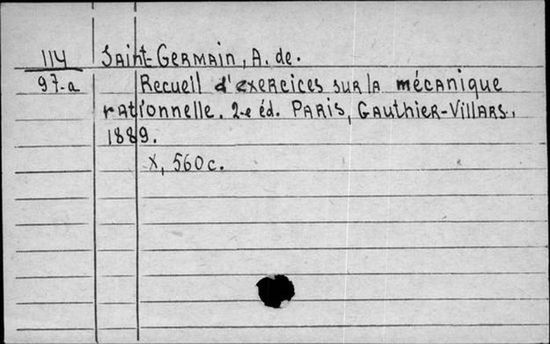 114 Saint-Germain, A. de.
97-a Recueil d'exercices sur la mécanique
rationnelle. 2-e éd. Paris, Gauthier-Villars,
1889.
X, 560 c.